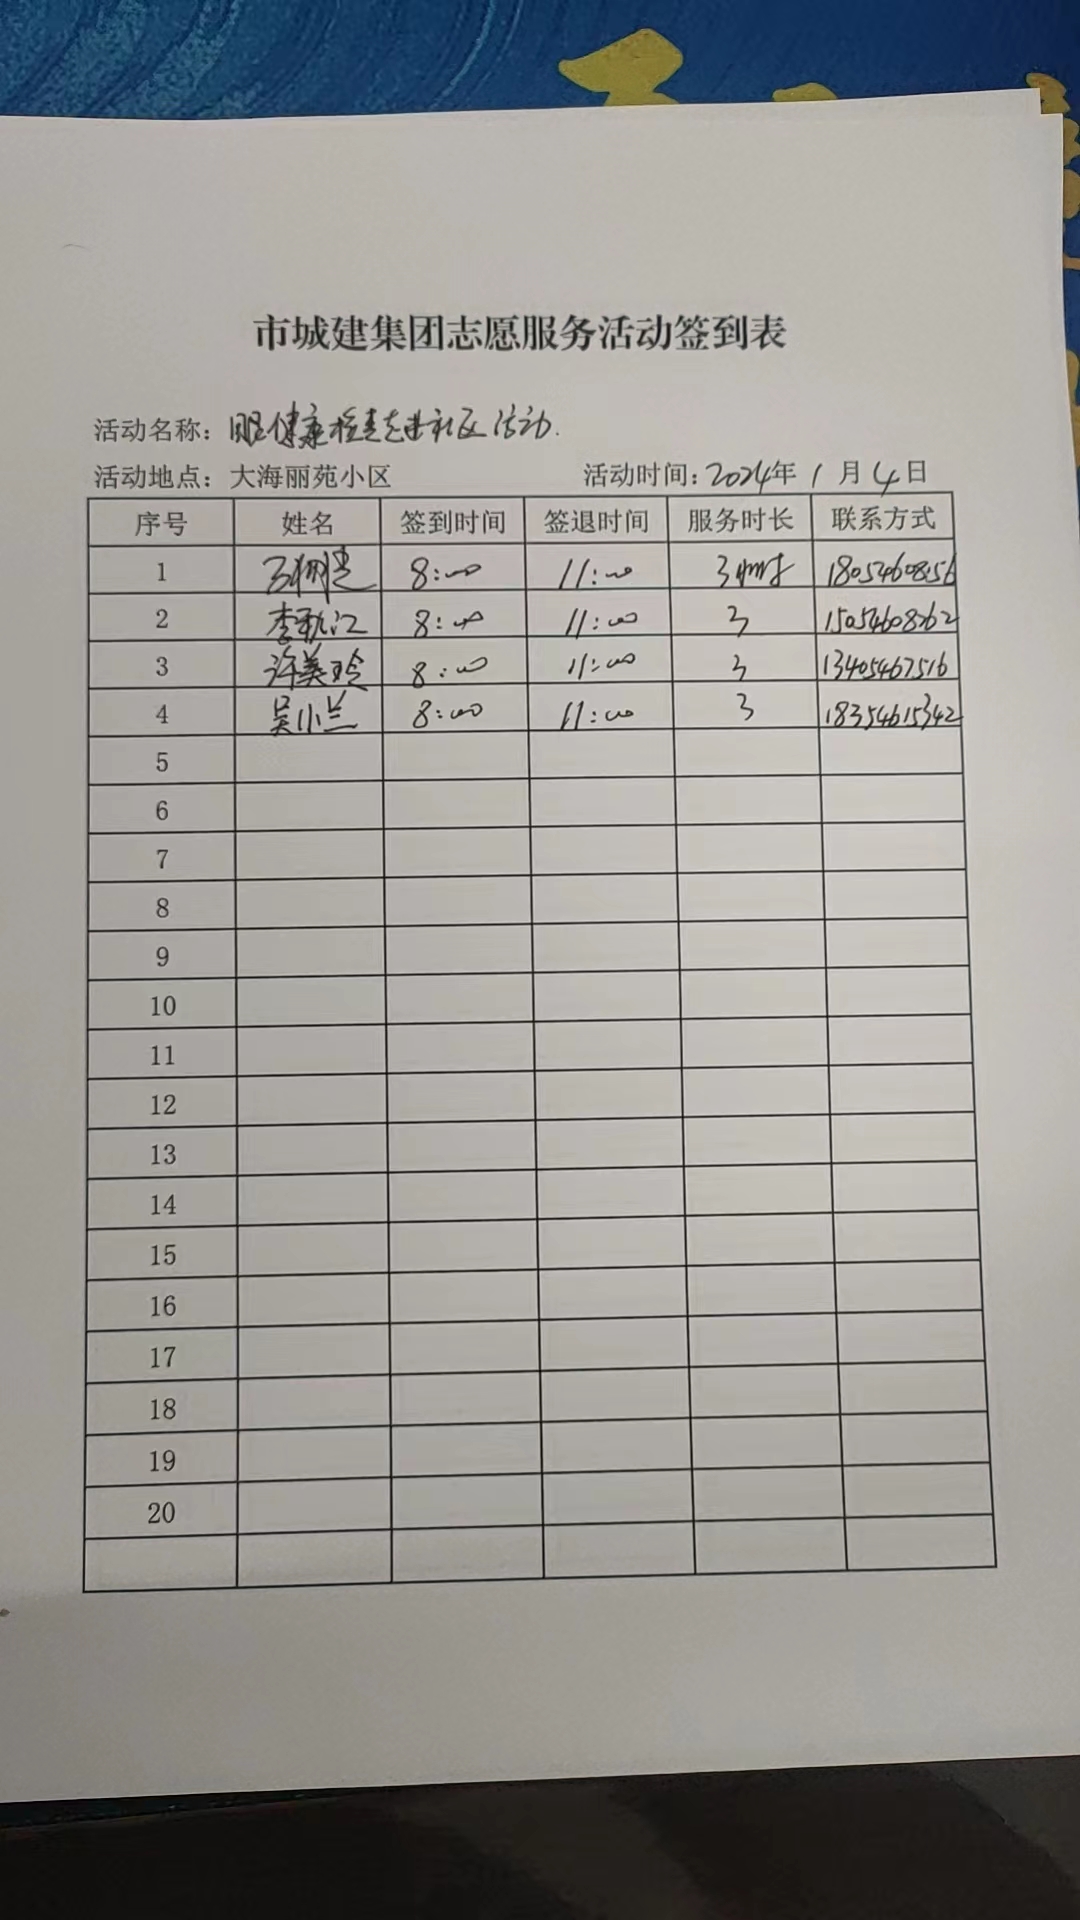 市城建集团志愿服务活动签到表
活动名称：眼健康检查走进社区活动.
活动地点：大海丽苑小区 活动时间：2024年1月4日
序号 姓名 签到时间 签退时间 服务时长 联系方式
1 8:00 11:00 3小时 18054608156
2 李航江 8:00 11:00 3 15054608262
3 许美玲 8:00 11:00 3 13405467516
4 吴小兰 8:00 11:00 3 18354615342
5
6
7
8
9
10
11
12
13
14
15
16
17
18
19
20